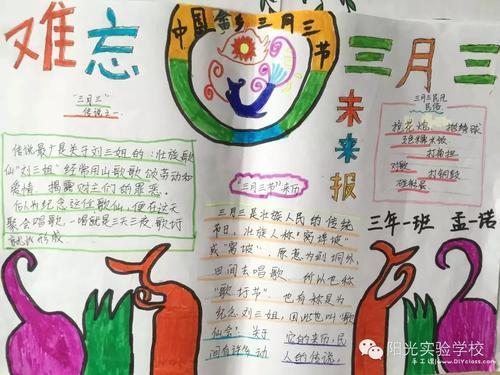 难忘
中国壮乡三月三节
三月三
未来报
三年一班 孟一诺
"三月三"
传说之一
传说最广是关于刘三姐的:壮族歌
仙"刘三姐"经常用山歌歌颂劳动和
爱情,揭露财主们的罪恶。
后人为纪念这位歌仙,便在这天
聚会唱歌,一唱就是三天三夜,歌圩
就此形成
"三月三节"来历
三月三是壮族人民的传统
节日,壮族人称"窝埠坡"
或"窝坡",原意为到垌外、
田间去唱歌,所以也称
"歌圩节"。也有称是为
纪念刘三姐,因此也叫"歌
仙会"。关于它的来历,民
间有许多动人的传说。
三月三民风
民俗
抢花炮 抛绣球
五色糯米饭
打扁担
对歌 打铜鼓
碰红蛋
阳光实验学校
手工课www.DIYclass.com